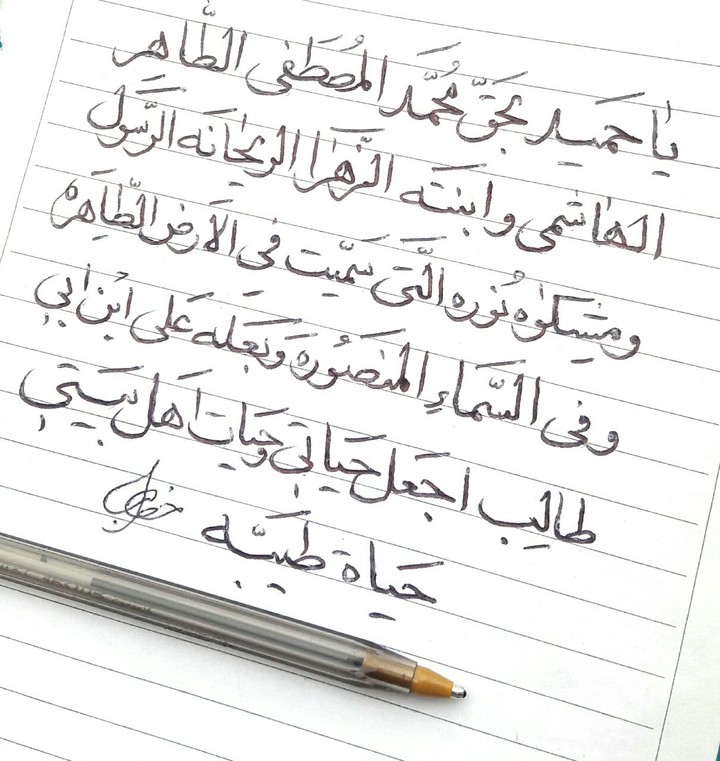 يٰا حَميد بحَقّ مُحمَّد المُصطَفى الطّاهر
الهٰاشمى وابنَته الزَّهرَا الريحٰانَه الرَّسَول
ومِشكوٰه نُوره الَّتى سَمّيت فِي الاَرض الطّٰاهِرَه
وفى السَّماءِ المَنصَوُرَه وَبَعله عَلى ابُن ابي
طالِب اجعَل حَيَاتي وحَيات اهَل بَيتي
حَياة طَيبَّه